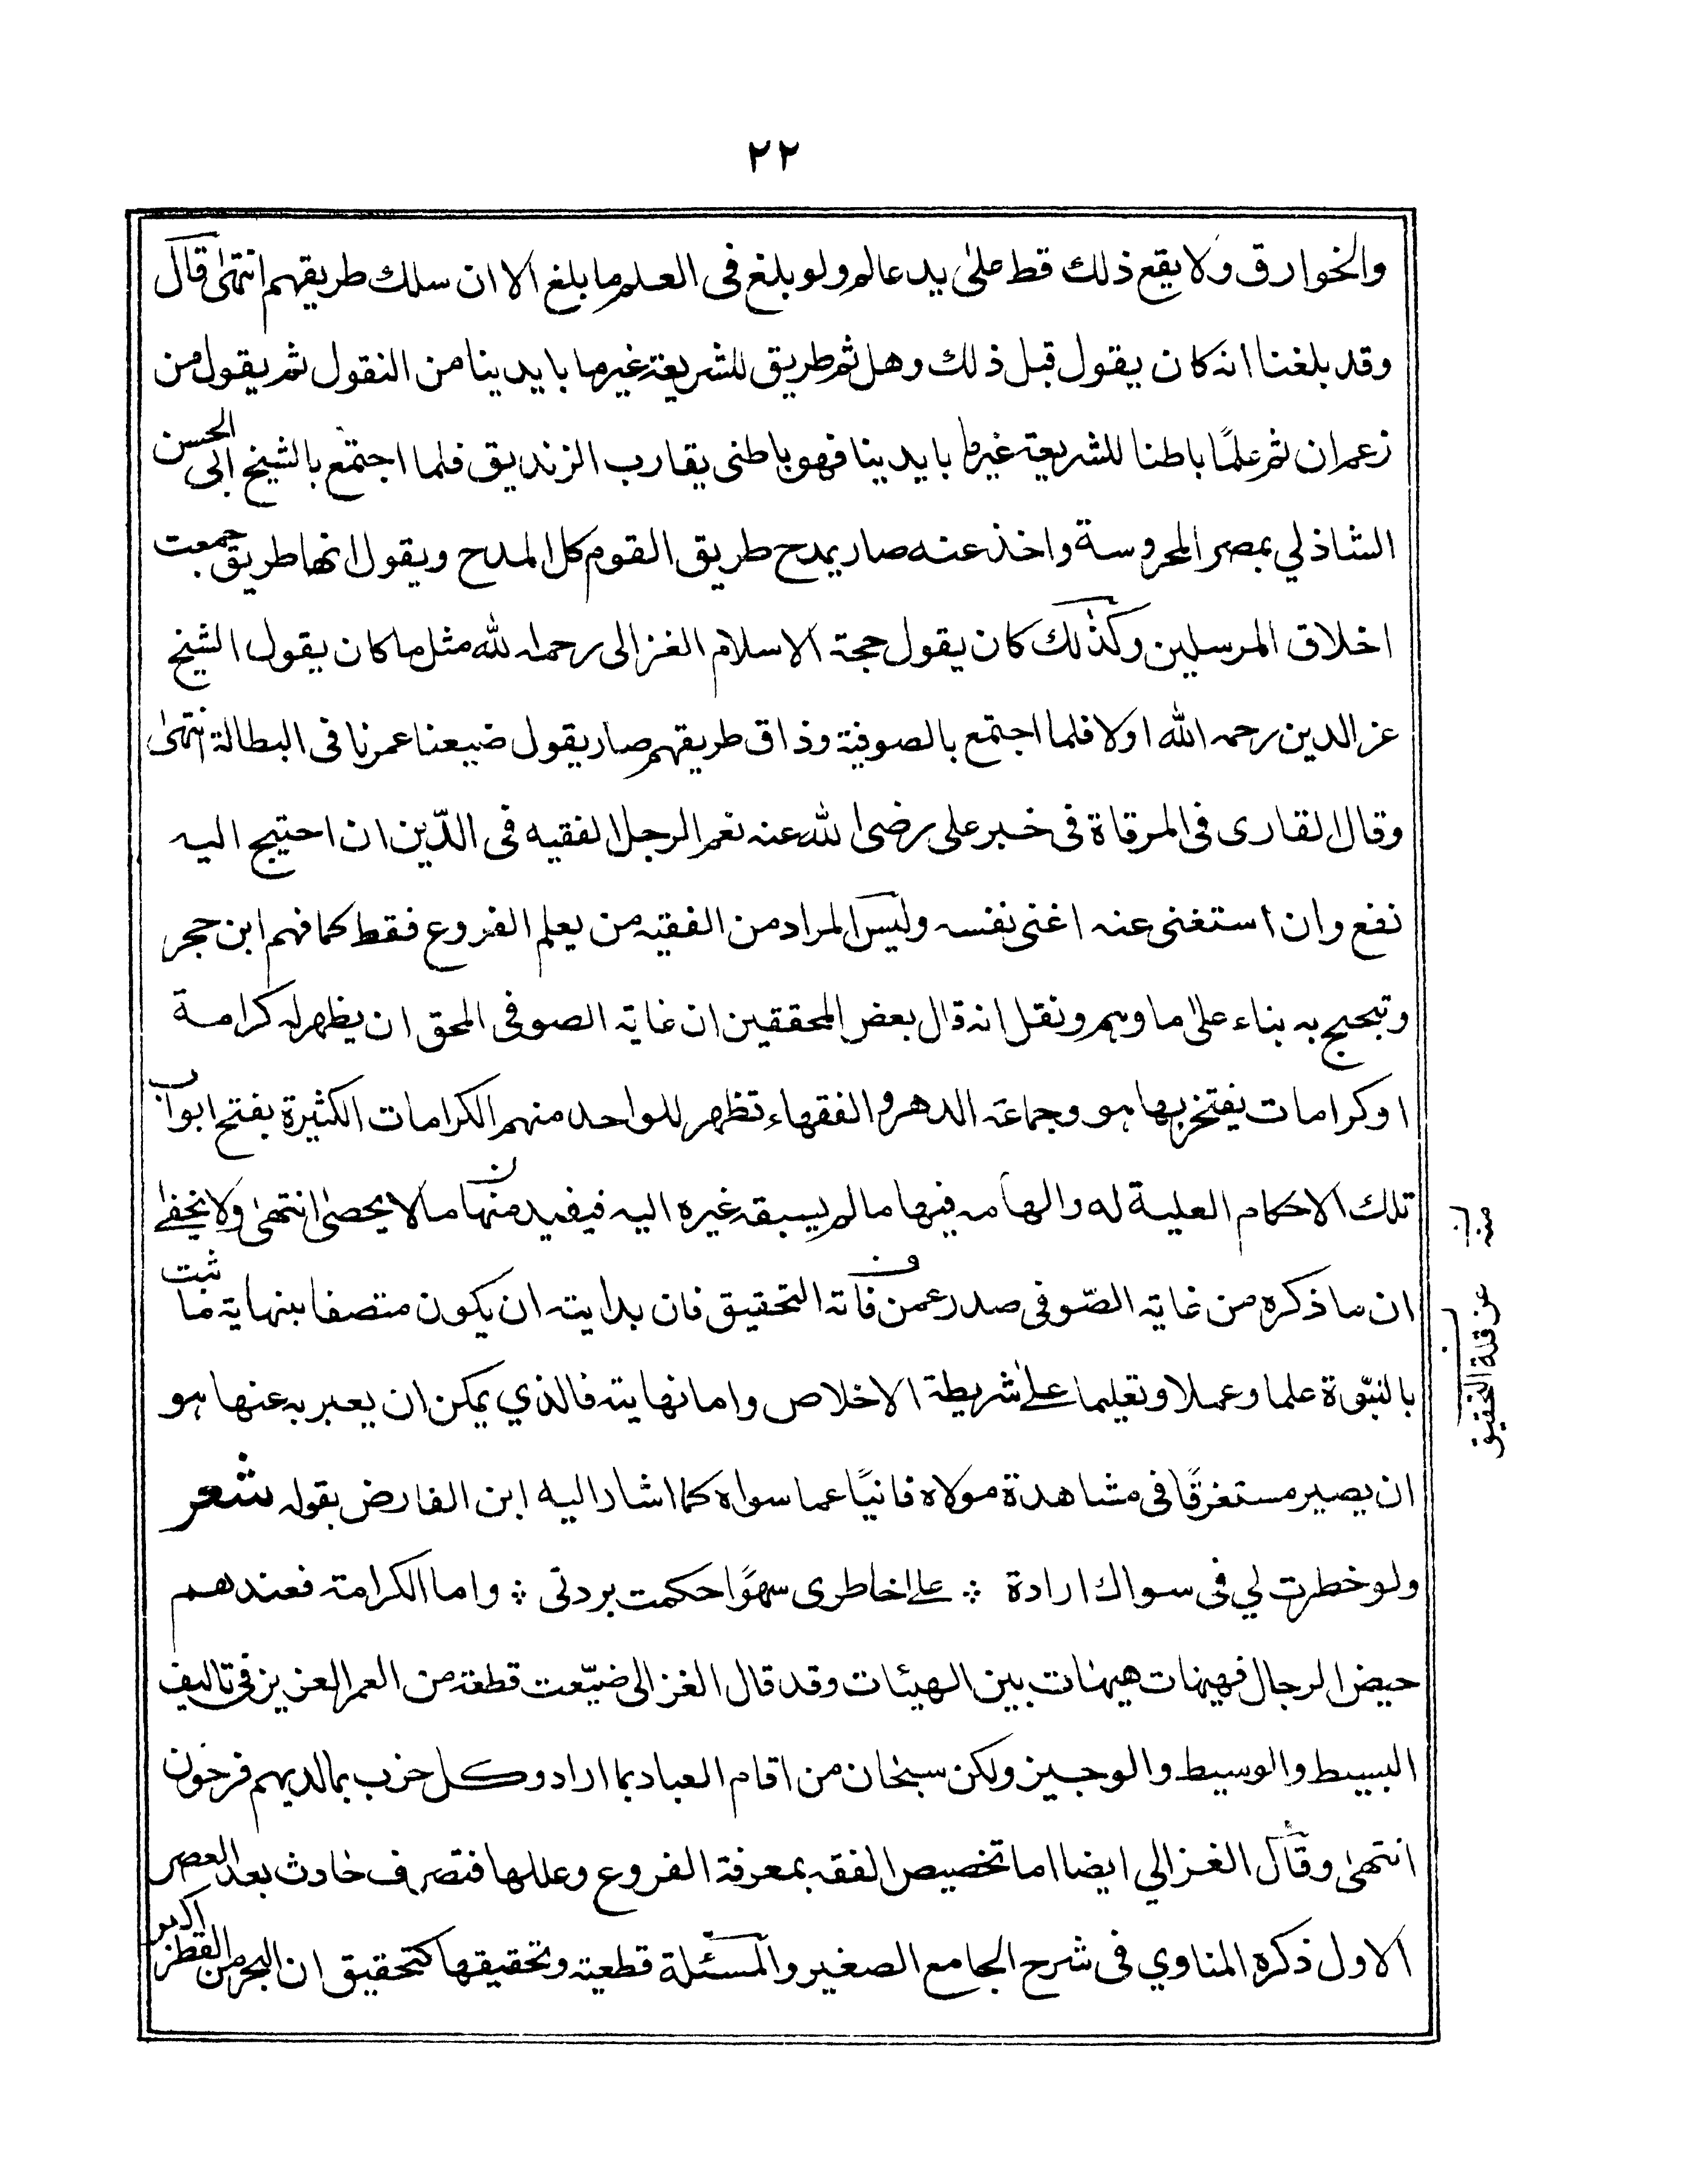 ٢٢
والخوارق ولا يقع ذلك قط على يد عالم ولو بلغ فى العلم ما بلغ الا ان سلك طريقهم انتهى قال
وقد بلغنا انه كان يقول قبل ذلك وهل ثم طريق للشريعة غير ما بايدينا من النقول ثم يقول من
زعم ان ثم علمًا باطنا للشريعة غير ما بايدينا فهو باطنى يقارب الزنديق فلما اجتمع بالشيخ ابى الحسن
الشاذلي بمصر المحروسة واخذ عنه صار يمدح طريق القوم كل المدح ويقول انها طريق جمعت
اخلاق المرسلين وكذلك كان يقول حجة الاسلام الغزالى رحمه الله مثل ما كان يقول الشيخ
عز الدين رحمه الله اولا فلما اجتمع بالصوفية وذاق طريقهم صار يقول ضيعنا عمرنا فى البطالة انتهى
وقال القارى فى المرقاة فى خبر على رضى الله عنه نعم الرجل الفقيه فى الدّين ان احتيج اليه
نفع وان استغنى عنه اغنى نفسه وليس المراد من الفقيه من يعلم الفروع فقط كما فهم ابن حجر
وتبجح به بناء على ما وهم ونقل انه قال بعض المحققين ان غاية الصوفى المحق ان يظهر له كرامة
او كرامات يفتخر بها هو وجماعة الدهر والفقهاء تظهر للواحد منهم الكرامات الكثيرة بفتح ابواب
تلك الاحكام العلية له والهامه فيها ما لم يسبقه غيره اليه فيفيد منها ما لا يحصى انتهى ولا يخفى
ان ما ذكره من غاية الصّوفى صدر عمن فاته التحقيق فان بدايته ان يكون متصفا بنهاية ما ثبت
بالنبّوة علما وعملا وتعليما على شريطة الاخلاص واما نهايته فالذي يمكن ان يعبر به عنها هو
ان يصير مستغرقًا فى مشاهدة مولاه فانيًا عما سواه كما اشار اليه ابن الفارض بقوله شعر
ولو خطرت لي فى سواك ارادة ؞ على خاطرى سهوًا حكمت بردتى ؞ واما الكرامة فعندهم
حيض الرجال فهيهات هيهات بين الهيئات وقد قال الغزالى ضيّعت قطعة من العمر العزيز فى تاليف
البسيط والوسيط والوجيز ولكن سبحان من اقام العباد بما اراد وكل حزب بما لديهم فرحون
انتهى وقال الغزالي ايضا اما تخصيص الفقه بمعرفة الفروع وعللها فتصرف حادث بعد العصر
الاول ذكره المناوي فى شرح الجامع الصغير والمسئلة قطعية وتحقيقها كتحقيق ان البحر من القطر اكبر
منه
عن قلة التحقيق